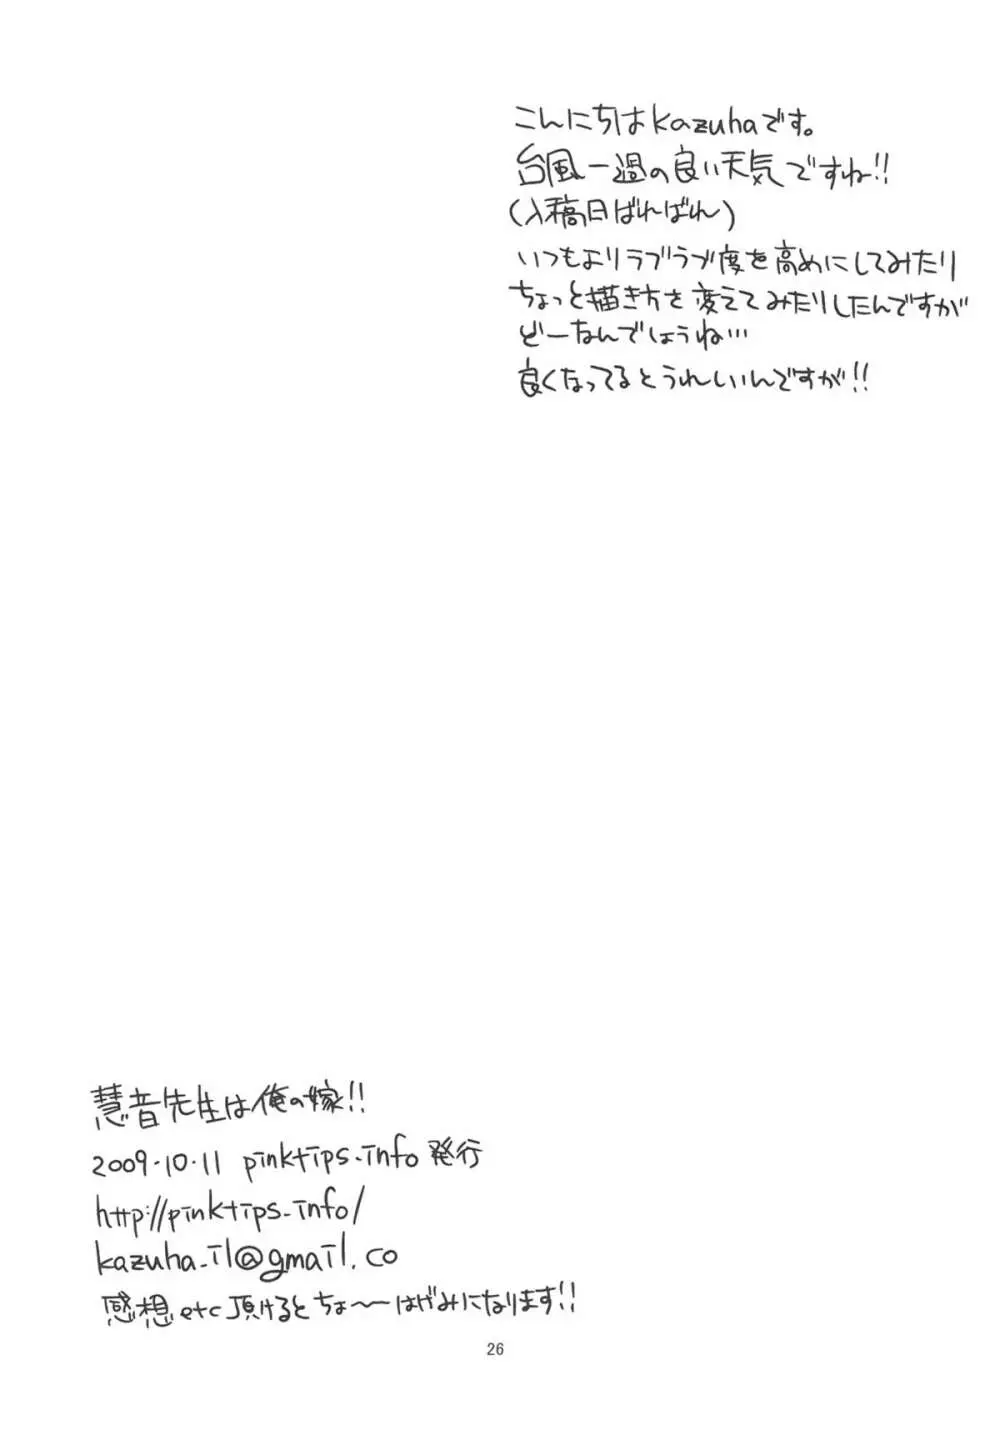 こんにちはkazuhaです。
台風一過の良い天気ですね!!
(入稿日ばればれ)
いつもよりラブラブ度を高めにしてみたり
ちょっと描き方を変えてみたりしたんですが
どーなんでしょうね…
良くなってるとうれしいんですが!!
慧音先生は俺の嫁!!
2009.10.11 pinktips-info 発行
http://pinktips-info/
kazuha_il@gmail.co
感想etc頂けるとちょ〜〜はげみになります!!
26